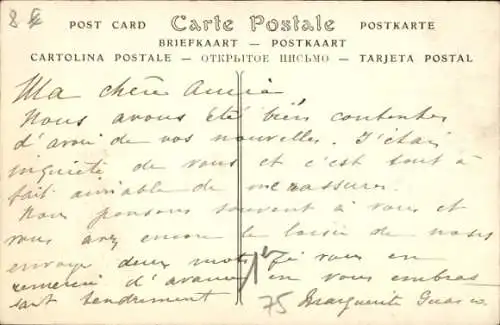 8
POST CARD Carte Postale POSTKARTE
BRIEFKAART — POSTKAART
CARTOLINA POSTALE — ОТКРЫТОЕ ПИСЬМО — TARJETA POSTAL
Ma chère Amie
Nous avous été bien contentes
d'avoir de vos nouvelles. J'étais
inquiète de vous et c'est tout à
fait aimable de me rassurer.
Nous pensons souvent à vous et
vous avez encore le loisir de nous
envoyer deux mots je vous en
remercie d'avance en vous embras
sant tendrement Marguerite
75